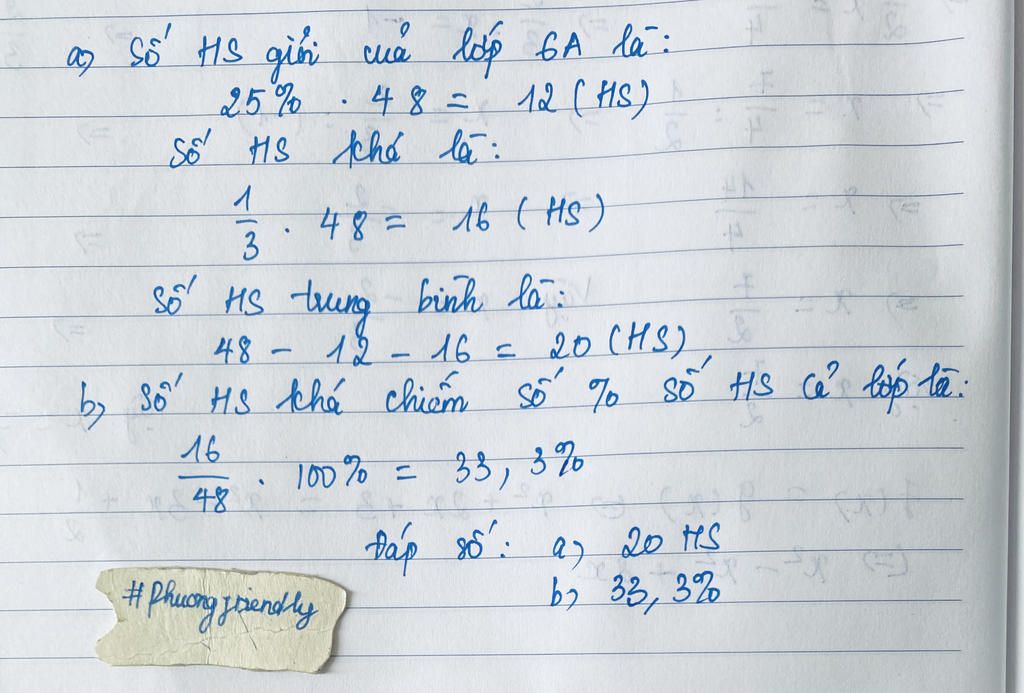 a) Số HS giỏi của lớp 6A là:
25% . 48 = 12 (HS)
Số HS khá là:
1/3 . 48 = 16 (HS)
Số HS trung bình là:
48 - 12 - 16 = 20 (HS)
b) Số HS khá chiếm số % số HS cả lớp là:
16/48 . 100% = 33,3%
Đáp số: a) 20 HS
b) 33,3%
#Phuongfriendly